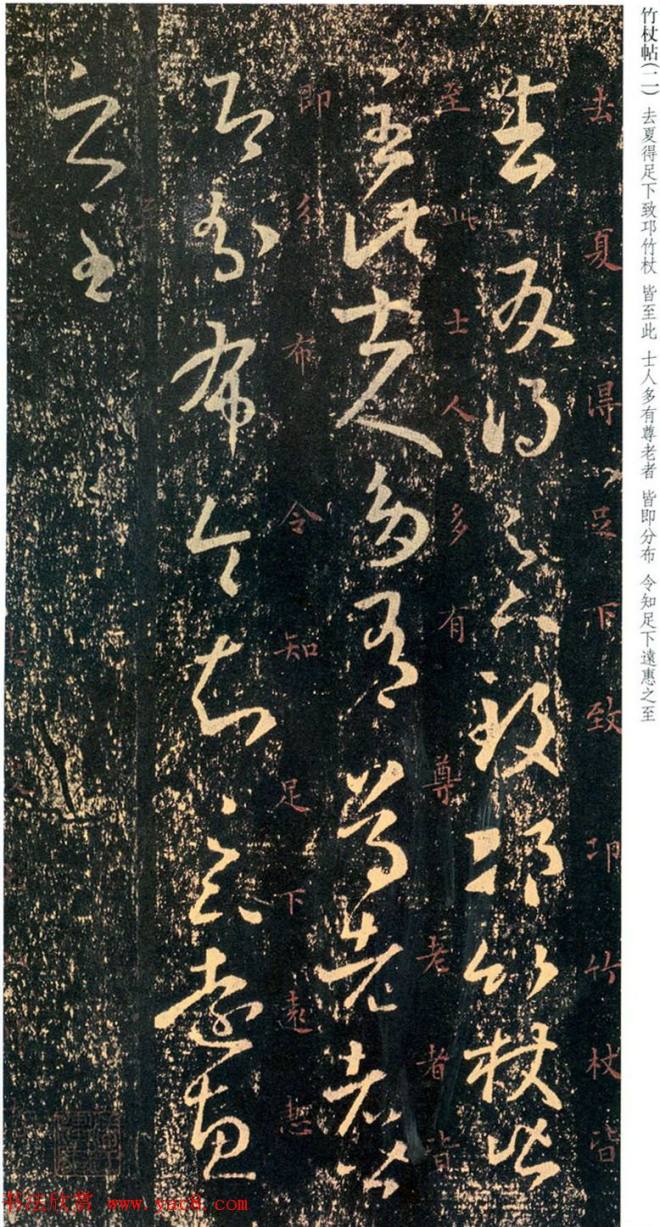 竹杖帖(二) 去夏得足下致邛竹杖 皆至此 士人多有尊老者 皆即分布 令知足下遠惠之至
去夏得足下致邛竹杖皆
去夏得足下致邛竹杖皆
至此士人多有尊老者皆
至此士人多有尊老者皆
即分布令知足下遠惠
即分布令知足下遠惠
之至
书法欣赏 www.yac8.com